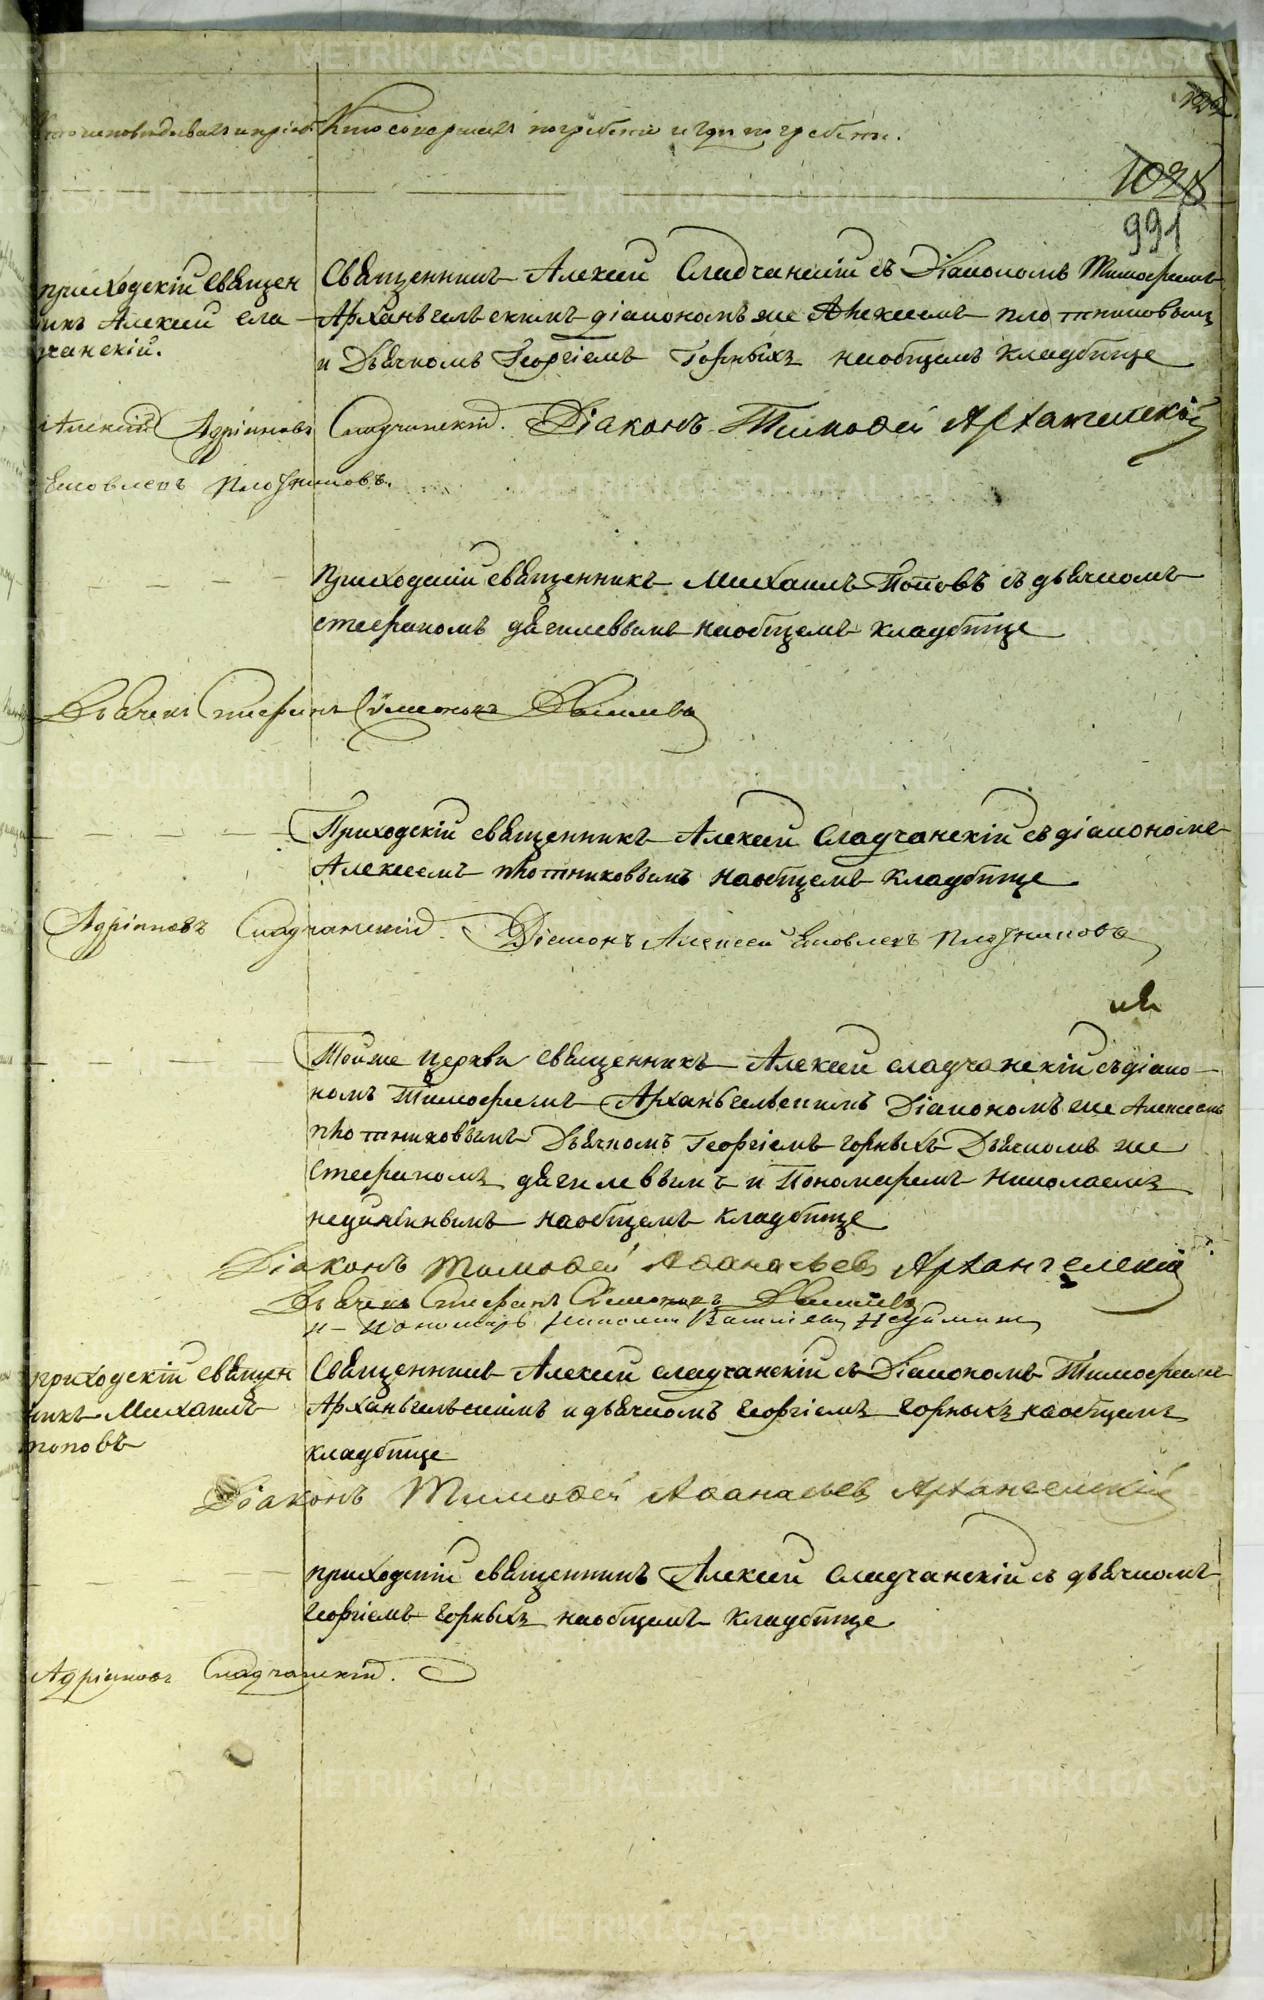 Кто исповедывалъ и приоб. Кто совершалъ погребенiе и гдѣ погребены.
991
приходскiй священ
никъ Алексiй Сла
чанскiй.
Священникъ Алексiй Сладчанскiй съ Дiакономъ Тимофеемъ
Арханьгельскимъ дiакономъ же Алексеемъ плотниковымъ
и Дьячкомъ Георгiемъ Горныхъ наобщемъ кладбище
Алексiй Адрiановъ Сладчанскiй. Дiаконъ Тимоѳей Архангелскiй
Яковлевъ Плотниковъ.
приходскiй священникъ Михаилъ Поповъ съ дьячкомъ
стефаномъ дягилевымъ наобщемъ кладбище
Дьячекъ Стефанъ Симеоновъ Дягилевъ
Приходскiй священникъ Алексiй Сладчанскiй съ дiакономъ
Алексеемъ плотниковымъ наобщемъ кладбище
Адрiановъ Сладчанскiй. Дiаконъ Алексей Яковлевъ Плотниковъ
Тойже церкви священникъ Алексiй сладчанскiй съ дiако
номъ Тимофеемъ Арханьгельскимъ Дiакономъ же Алексеемъ
плотниковымъ Дьячкомъ Георгiемъ горныхъ Дьячкомъ же
Стефаномъ дягилевымъ и Пономаремъ Николаемъ
наобщемъ кладбище
Дiаконъ Тимоѳей Аѳанасьевъ Архангелскiй
Дьячекъ Стефанъ Симеоновъ Дягилевъ
и пономарь Николай
приходскiй священ
никъ Михаилъ
поповъ
Священникъ Алексiй сладчанскiй съ Дiакономъ Тимофеемъ
Арханьгельскимъ и дьячкомъ георгiемъ горныхъ наобщемъ
кладбище
Дiаконъ Тимоѳей Аѳанасьевъ Архангелскiй
приходскiй священникъ Алексiй Сладчанскiй съ дьячкомъ
георгiемъ горныхъ наобщемъ кладбище
Адрiановъ Сладчанскiй.
METRIKI.GASO-URAL.RU